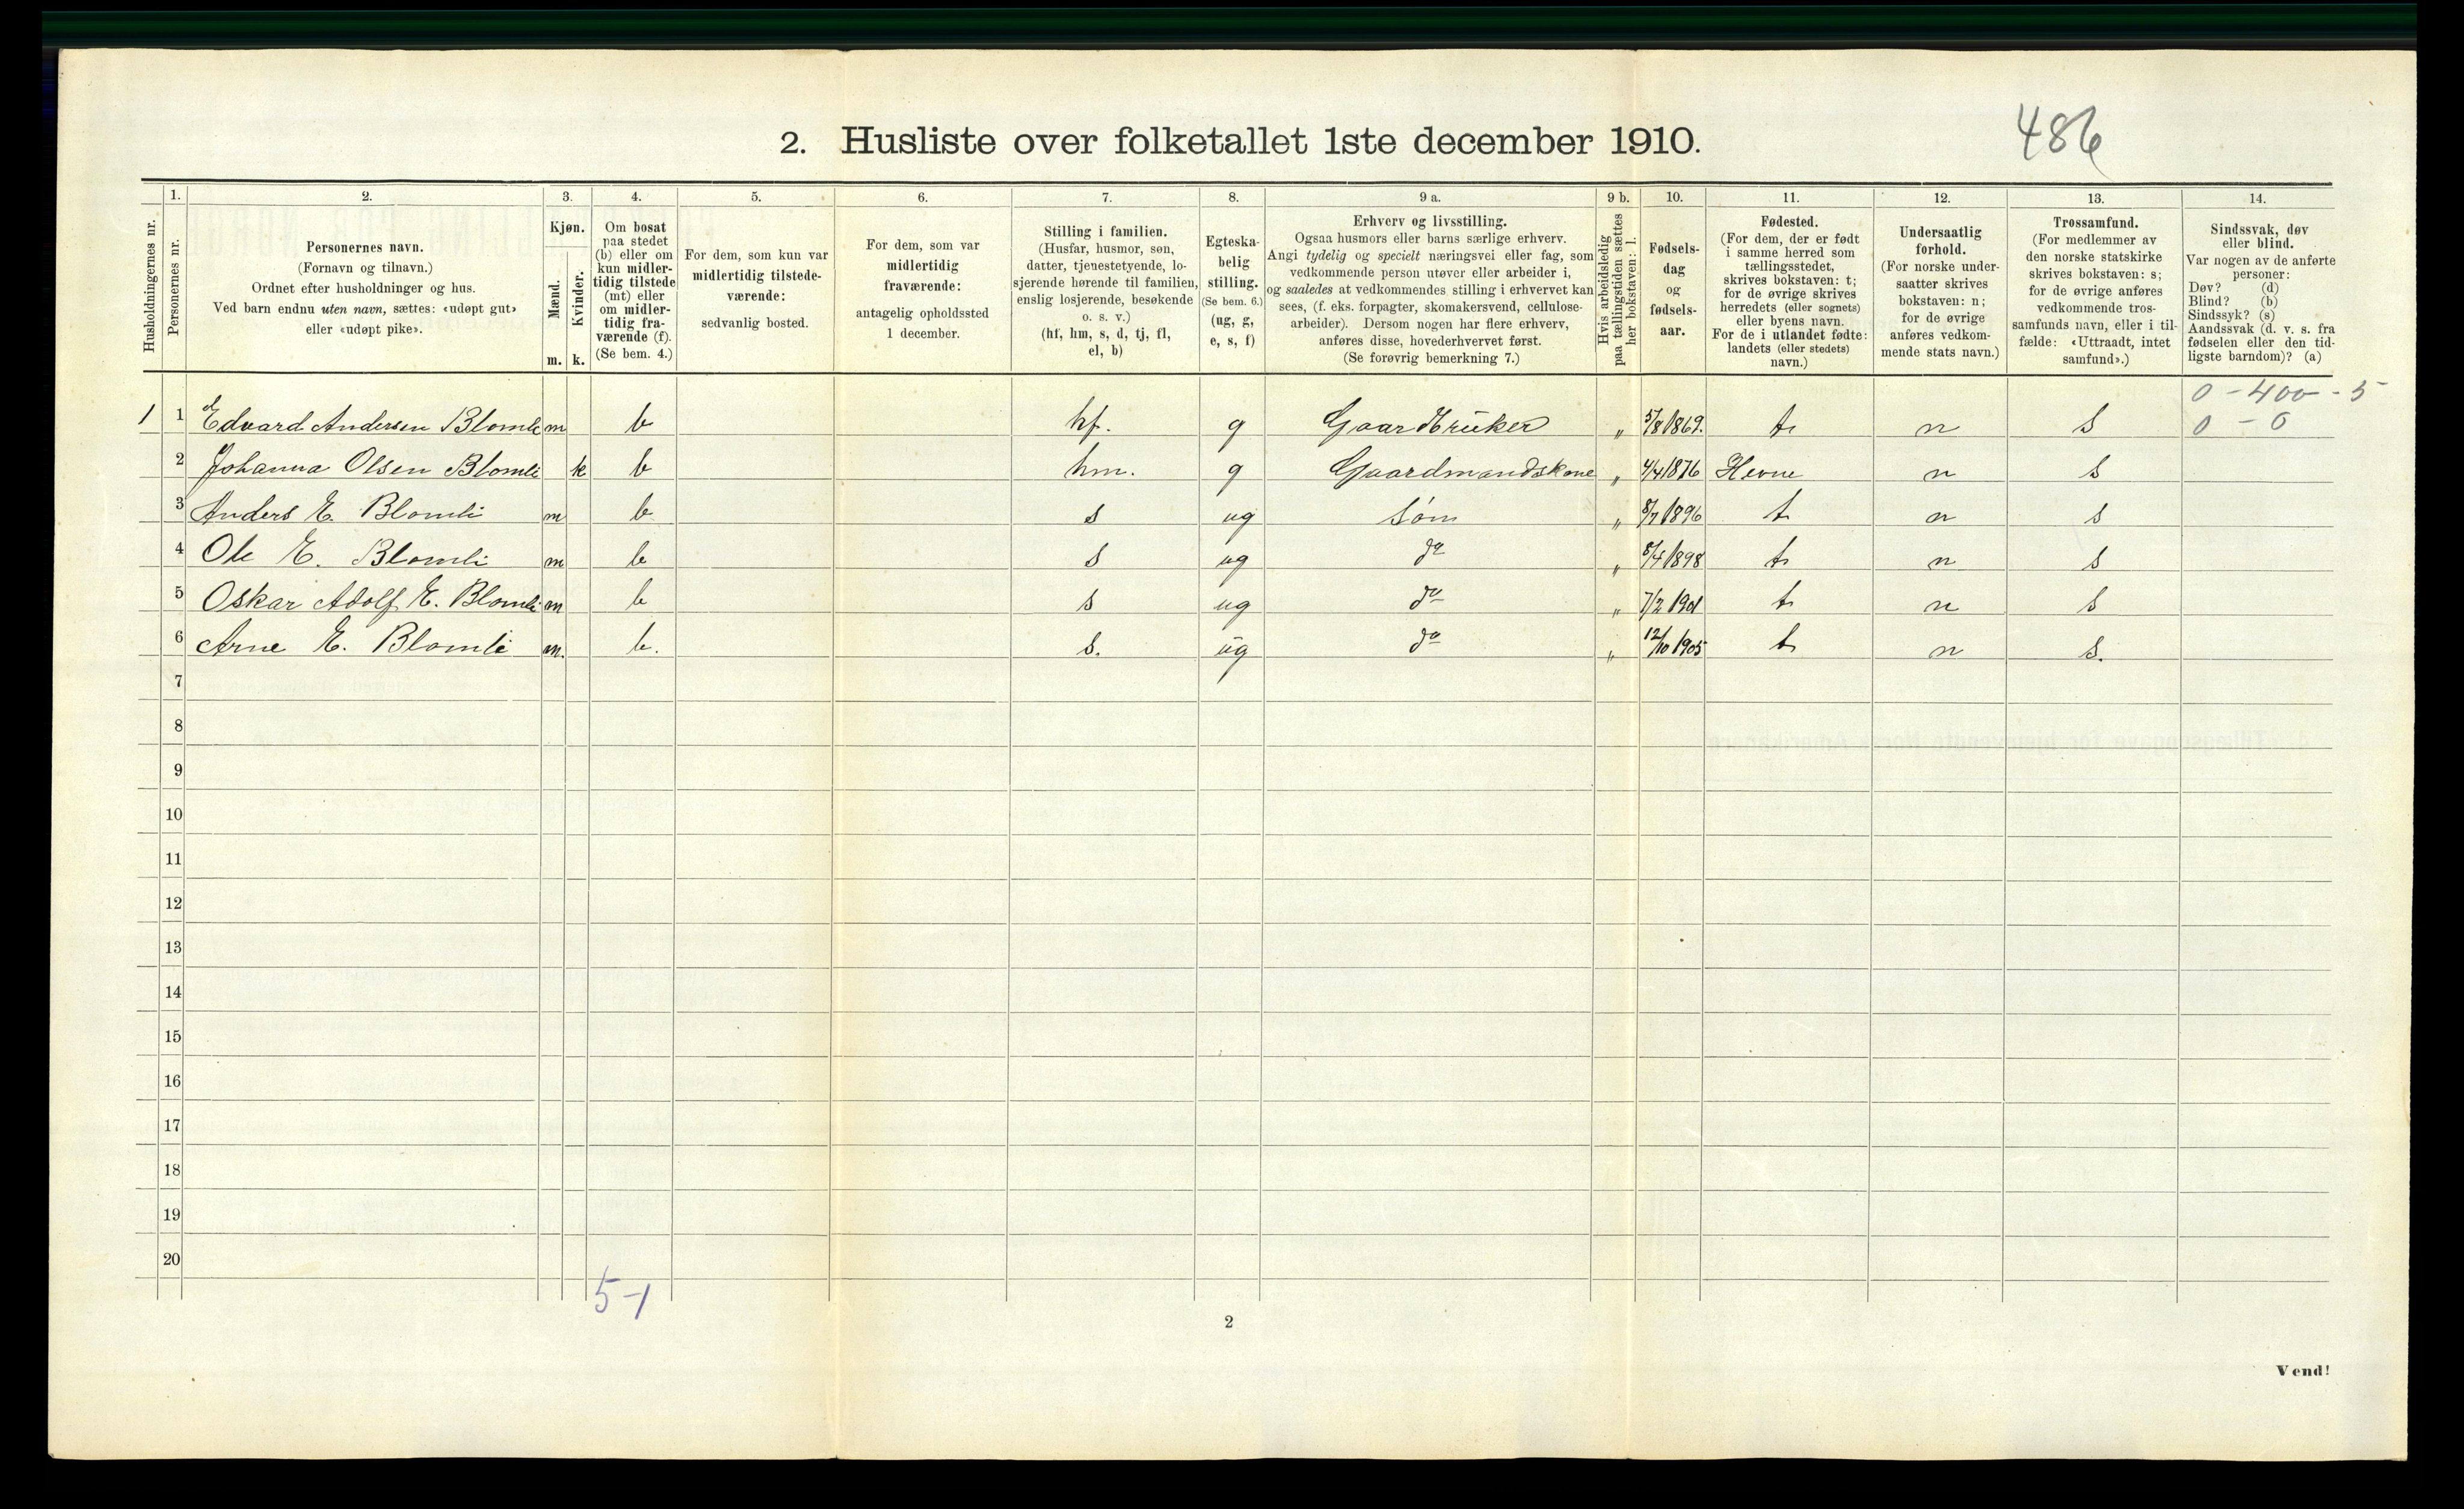 486
2. Husliste over folketallet 1ste december 1910.
Husholdningernes nr.
1.
Personernes nr.
2.
Personernes navn.
(Fornavn og tilnavn.)
Ordnet efter husholdninger og hus.
Ved barn endnu uten navn, sættes: «udøpt gut»
eller «udøpt pike».
3.
Kjøn.
Mænd.
m.
Kvinder.
k.
4.
Om bosat
paa stedet
(b) eller om
kun midler-
tidig tilstede
(mt) eller
om midler-
tidig fra-
værende (f).
(Se bem. 4.)
5.
For dem, som kun var
midlertidig tilstede-
værende:
sedvanlig bosted.
6.
For dem, som var
midlertidig
fraværende:
antagelig opholdssted
1 december.
7.
Stilling i familien.
(Husfar, husmor, søn,
datter, tjenestetyende, lo-
sjerende hørende til familien,
enslig losjerende, besøkende
o. s. v.)
(hf, hm, s, d, tj, fl,
el, b)
8.
Egteska-
belig
stilling.
(Se bem. 6.)
(ug, g,
e, s, f)
9 a.
Erhverv og livsstilling.
Ogsaa husmors eller barns særlige erhverv.
Angi tydelig og specielt næringsvei eller fag, som
vedkommende person utøver eller arbeider i,
og saaledes at vedkommendes stilling i erhvervet kan
sees, (f. eks. forpagter, skomakersvend, cellulose-
arbeider). Dersom nogen har flere erhverv,
anføres disse, hovederhvervet først.
(Se forøvrig bemerkning 7.)
9 b.
Hvis arbeidsledig
paa tællingstiden sættes
her bokstaven: l.
10.
Fødsels-
dag
og
fødsels-
aar.
11.
Fødested.
(For dem, der er født
i samme herred som
tællingsstedet,
skrives bokstaven: t;
for de øvrige skrives
herredets (eller sognets)
eller byens navn.
For de i utlandet fødte:
landets (eller stedets)
navn.)
12.
Undersaatlig
forhold.
(For norske under-
saatter skrives
bokstaven: n;
for de øvrige
anføres vedkom-
mende stats navn.)
13.
Trossamfund.
(For medlemmer av
den norske statskirke
skrives bokstaven: s;
for de øvrige anføres
vedkommende tros-
samfunds navn, eller i til-
fælde: «Uttraadt, intet
samfund».)
14.
Sindssvak, døv
eller blind.
Var nogen av de anførte
personer:
Døv? (d)
Blind? (b)
Sindssyk? (s)
Aandssvak (d. v. s. fra
fødselen eller den tid-
ligste barndom)? (a)
0 - 400 - 5
1 1 Edvard Andersen Blomli m b hf. g Gaardbruker „ 5/8 1869. t n s 0 - 0
2 Johanna Olsen Blomli k b hm. g Gaardmandskone „ 4/4 1876 Hevne n s
3 Anders E. Blomli m b s ug Søn „ 8/7 1896 t n s
4 Ole E. Blomli m b s ug do „ 1898 t n s
5 Oskar Adolf E. Blomli m b s ug do „ 7/2 1901 t n s
6 Arne E. Blomli m. b. s. ug do „ 12/10 1905 t n s.
7
8
9
10
11
12
13
14
15
16
17
18
19
20
5-1
2
Vend!